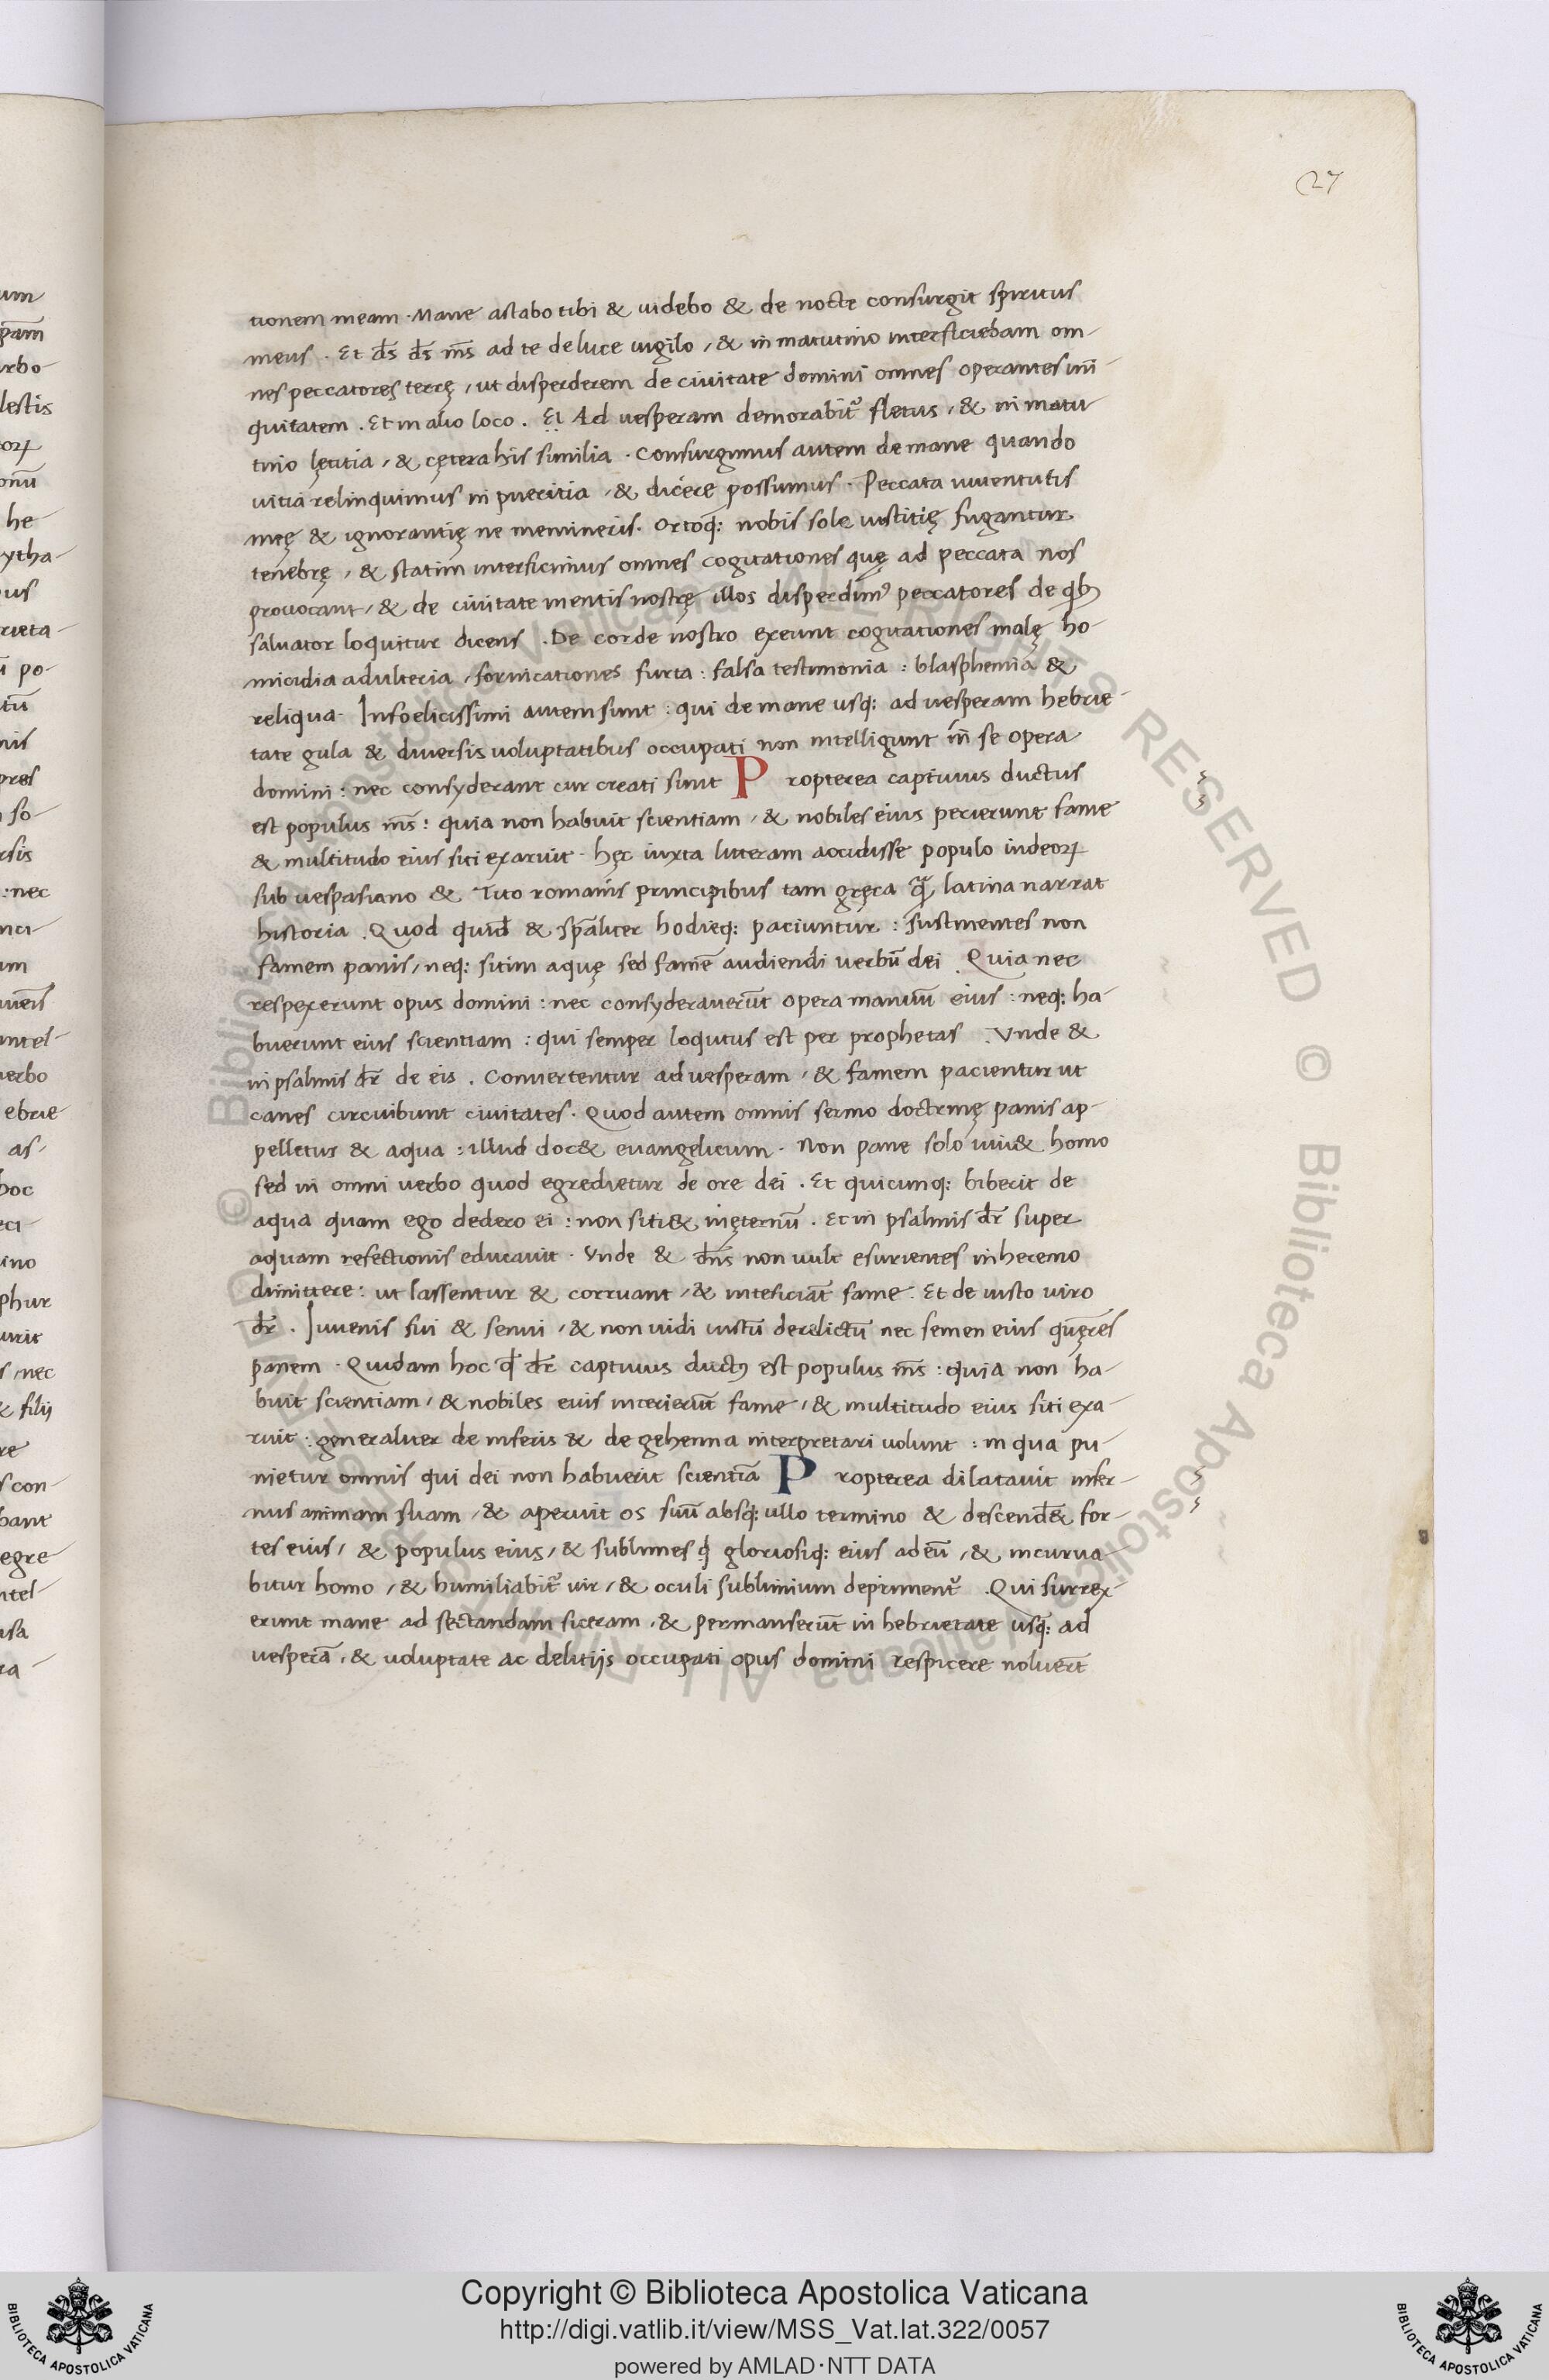 27
tionem meam. Mane astabo tibi & uidebo & de nocte consurgit spiritus
meus. Et ds̄ ds̄ ms̄ ad te de luce uigilo, & in matutino interficiebam om-
nes peccatores terrę, ut disperderem de ciuitate domini omnes operantes ini-
quitatem. Et in alio loco. Et Ad uesperam demorabit᷑ fletus, & in matu
tino lętitia, & cętera his similia. Consurgimus autem de mane quando
uitia relinquimus in pueritia, & dicere possumus. Peccata iuuentutis
meę & ignorantię ne memineris. Ortoq: nobis sole iustitię fugantur
tenebrę, & statim interficimus omnes cogitationes quę ad peccata nos
prouocant, & de ciuitate mentis nostrę illos disperdimꝰ peccatores de qbꝫ
saluator loquitur dicens. De corde nostro exeunt cogitationes malę ho-
micidia adulteria, fornicationes furta: falsa testimonia: blasphemia &
reliqua. Infoelicissimi autem sunt: qui de mane usq: ad uesperam hebrie-
tate gula & diuersis uoluptatibus occupati non intelligunt in̄ se opera
domini: nec consyderant cur creati sunt Propterea captiuus ductus
est populus ms̄: quia non habuit scientiam, & nobiles eius perierunt fame
& multitudo eius siti exaruit. hęc iuxta litteram accidisse populo iudeoꝝ
sub uespasiano & Tito romanis principibus tam gręca q̄ latina narrat
historia. Quod quid̄ & spāliter hodieq: paciuntur: sustinentes non
famem panis, neq: sitim aquę sed famē audiendi uerbū dei. Quia nec
respexerunt opus domini: nec consyderauerūt opera manuū eius: neq: ha-
buerunt eius scientiam: qui semper loqutus est per prophetas. Vnde &
in psalmis dr̄ de eis. Conuertentur ad uesperam, & famem pacientur ut
canes circuibunt ciuitates. Quod autem omnis sermo doctrinę panis ap-
pelletur & aqua: illud doc& euangelicum. Non pane solo uiu& homo
sed in omni uerbo quod egredietur de ore dei. Et quicunq: biberit de
aqua quam ego dedero ei: non siti& inęternū. Et in psalmis dr̄ super
aquam refectionis educauit. Vnde & dn̄s non uult esurientes in heremo
dimittere: ut lassentur & corruant, & inteficiāt fame. Et de iusto uiro
dr̄. Iuuenis fui & senui, & non uidi iustū derelictū nec semen eius quęres
panem. Quidam hoc qd̄ dr̄ captiuus ductꝰ est populus ms̄: quia non ha-
buit scientiam, & nobiles euis interierūt fame, & multitudo eius siti exa-
ruit: generaliter de inferis & de gehenna interpretari uolunt: in qua pu-
nietur omnis qui dei non habuerit scientiā Propterea dilatauit infer-
nus animam suam, & aperuit os suū absq: ullo termino & descend& for-
tes eius, & populus eius, & sublimes q; gloriosiq: eius ad eū, & incurua-
bitur homo, & humiliabit᷑ uir, & oculi sublimium depriment᷑. Qui surrex-
erunt mane ad sectandam siceram, & permanserūt in hebrietate usq: ad
uesperā, & uoluptate ac delitijs occupati opus domini respicere noluer̄t
Copyright © Biblioteca Apostolica Vaticana
http://digi.vatlib.it/view/MSS_Vat.lat.322/0057
powered by AMLAD·NTT DATA